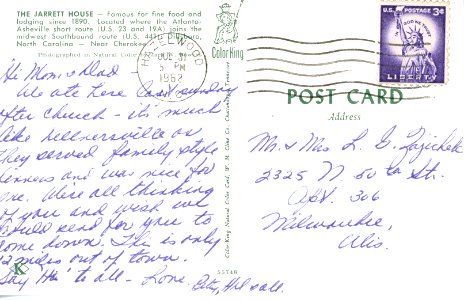 THE JARRETT HOUSE — Famous for fine food and
lodging since 1890. Located where the Atlanta-
Asheville short route (U.S. 23 and 19A) joins the
midwest Southbound route (U.S. 441), Dillsboro,
North Carolina — Near Cherokee
Photographed in Natural Color
Hi Mom & Dad
We ate here last Sunday
after church - it's much
like as
they served family style
dinners and was nice for
one. We're all thinking
of you and wish we
could send for you to
come down. This is only
12 miles out of town.
Say "Hi" to all - Love. Betty, Hal & all.
K
Color King
Color-King Natural Color Card, W. M. Cline Co., Chattanooga
55748
HAZELWOOD
PM
1962
N.C.
U.S. POSTAGE 3¢
IN GOD WE TRUST
LIBERTY
POST CARD
Address
Mr. & Mrs L. G. Zajichek
2325 N 50 th St.
Apt. 306
Milwaukee,
Wis.